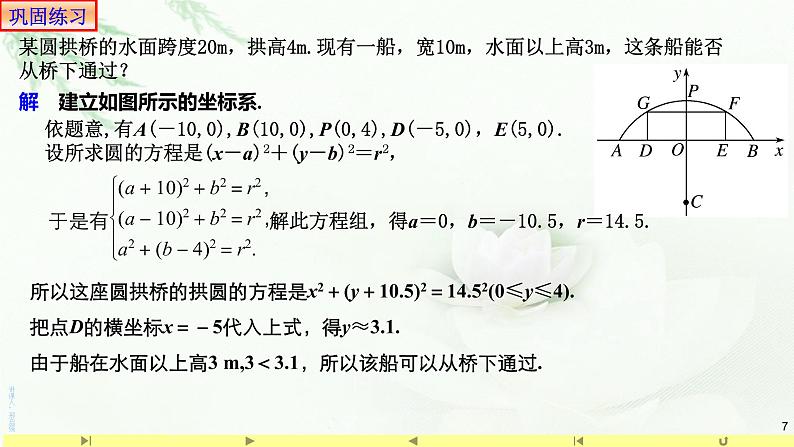 巩固练习
某圆拱桥的水面跨度20m，拱高4m.现有一船，宽10m，水面以上高3m，这条船能否
从桥下通过？
解 建立如图所示的坐标系.
依题意,有A(－10,0),B(10,0),P(0,4),D(－5,0)，E(5,0).
设所求圆的方程是(x－a)²＋(y－b)²＝r²,
于是有
(a + 10)² + b² = r²,
(a − 10)² + b² = r²,
a² + (b − 4)² = r².
解此方程组，得a＝0，b＝－10.5，r＝14.5.
所以这座圆拱桥的拱圆的方程是x²＋(y＋10.5)²＝14.5²(0≤y≤4).
把点D的横坐标x＝－5代入上式，得y≈3.1.
由于船在水面以上高3 m,3＜3.1，所以该船可以从桥下通过.
y
P
G
F
A
D
O
E
B
x
C
7